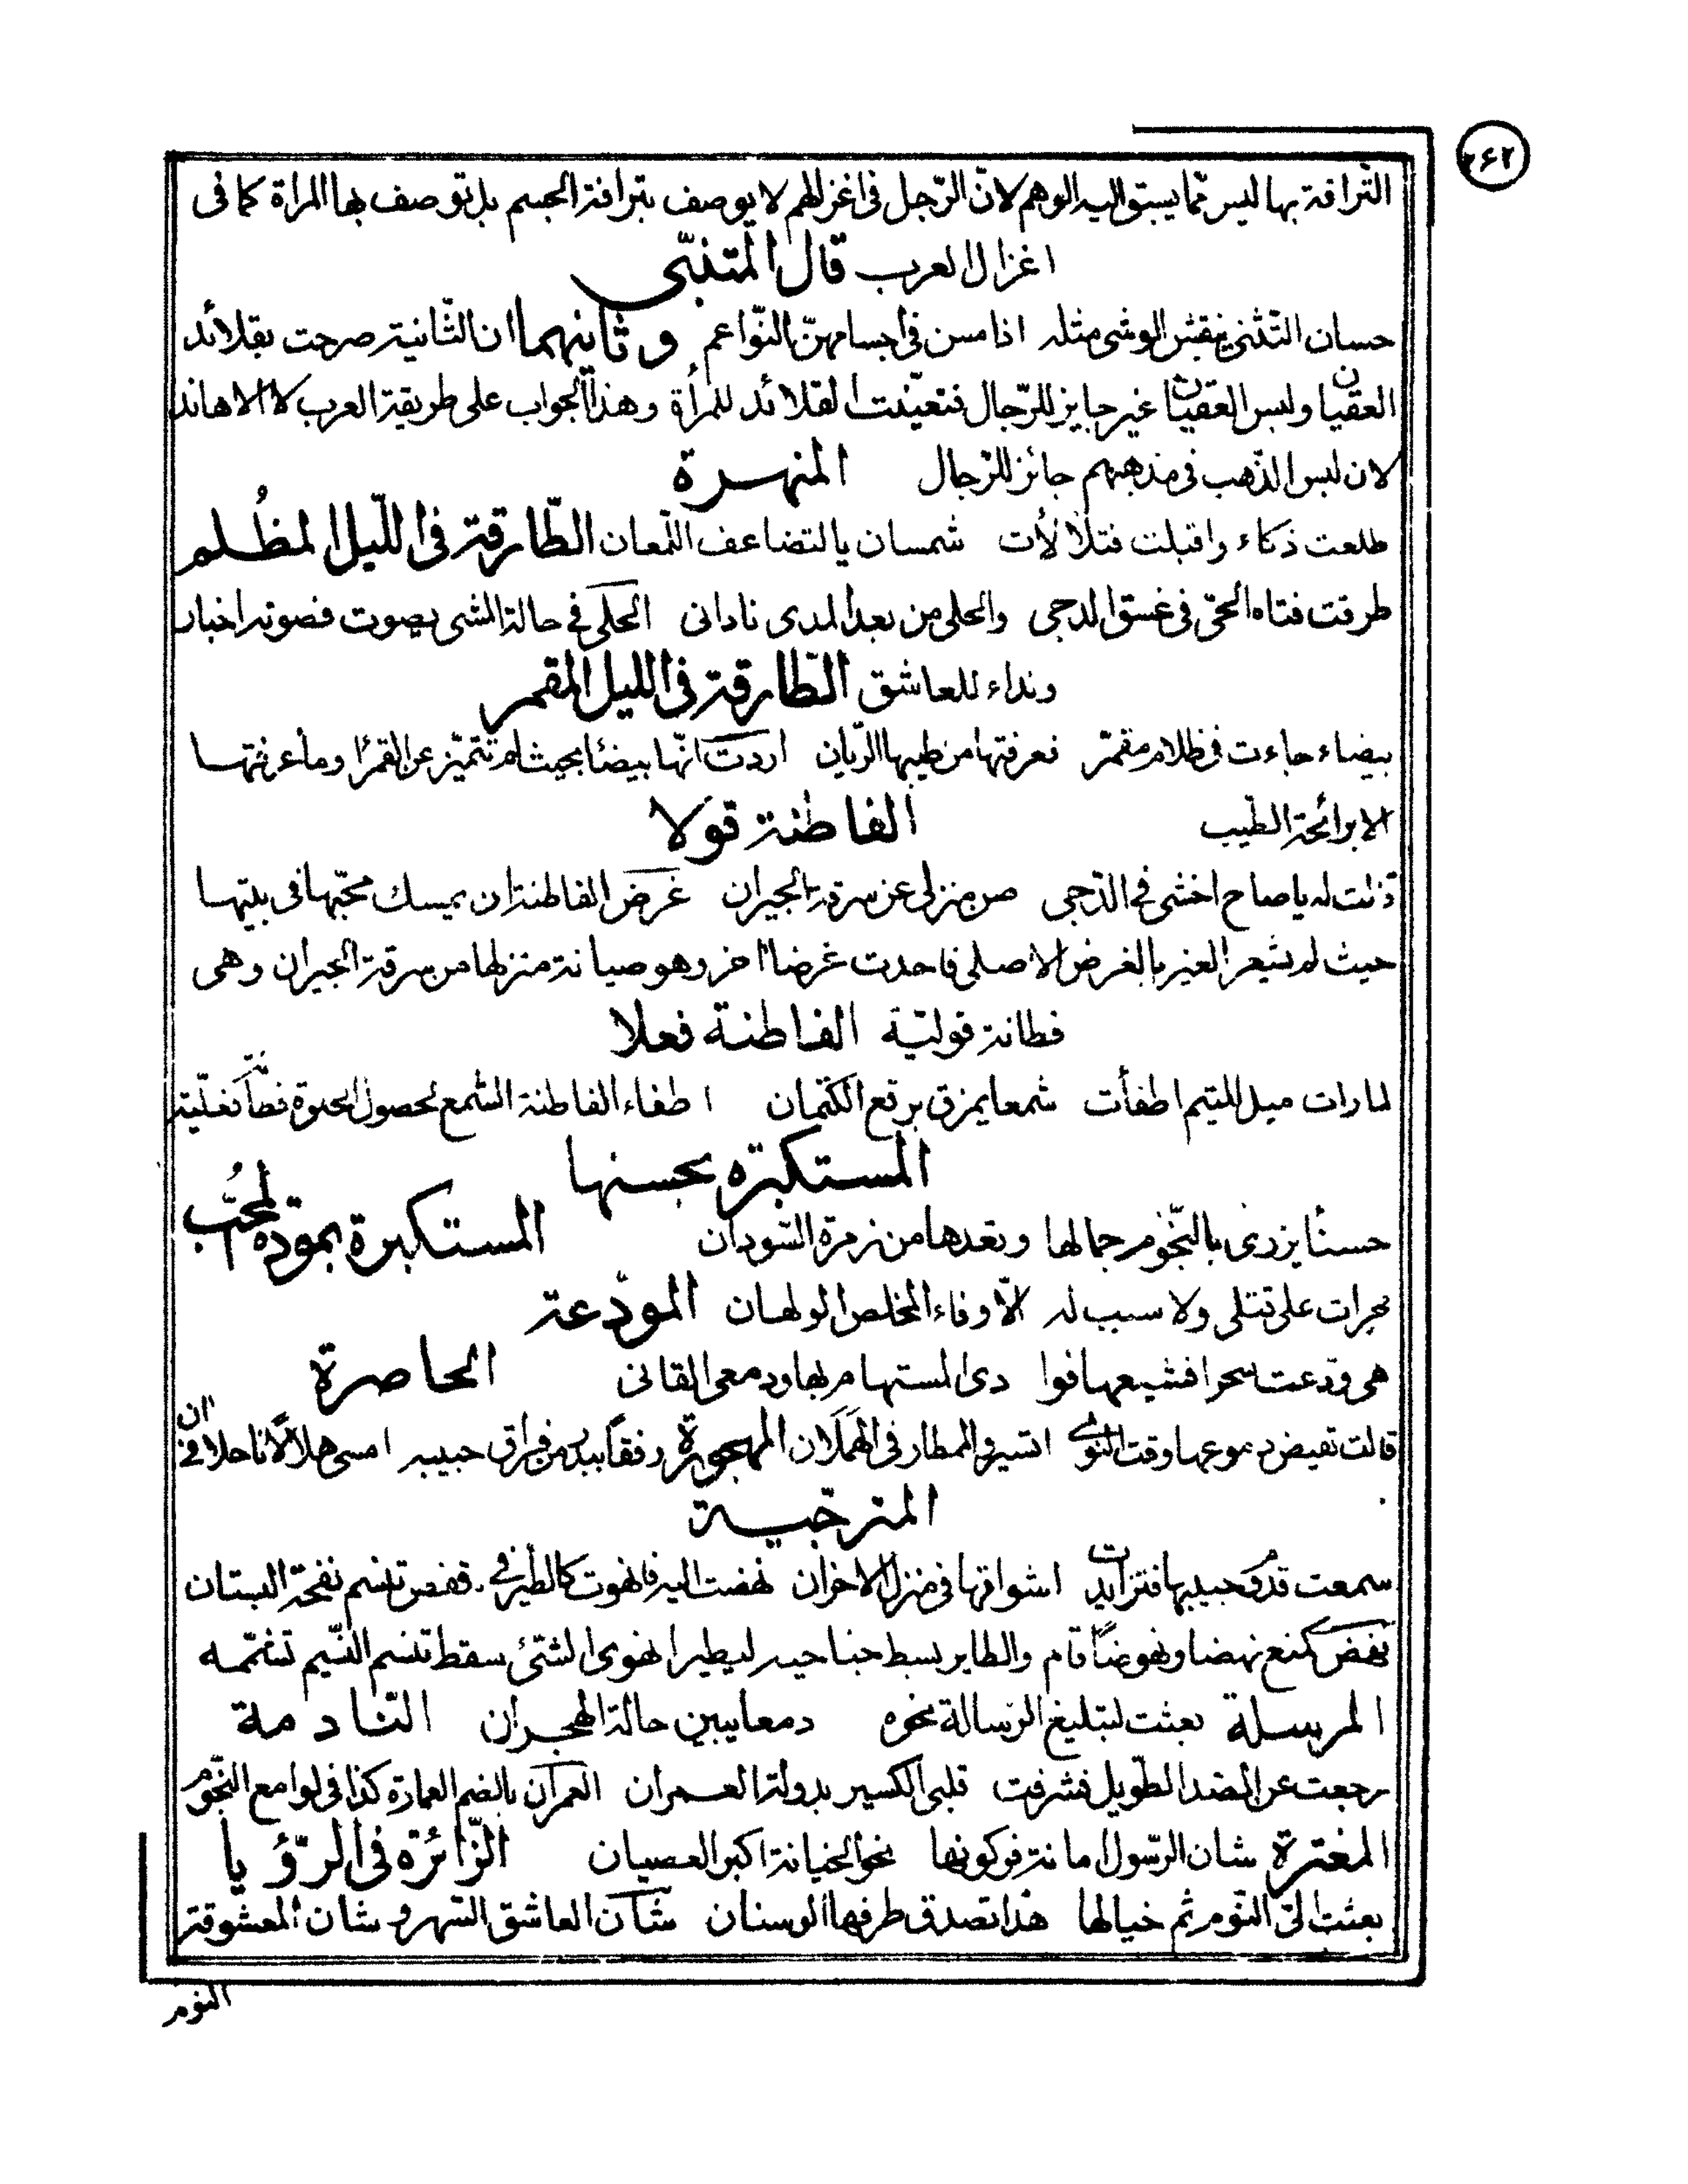 ٢٤٢
الترافة بها ليس ممّا يسبق اليه الوهم لانّ الرّجل فى اغزالهم لا يوصف بترافة الجسم بل توصف بها المراة كما فى
اغزال العرب قال المتنبّى
حسان التّثنى ينقش الوشى مثله اذا مسن فى اجسامهنّ النّواعم وثانيهما ان الثّانية صرحت بقلائد
العقيان ولبس العقيان غير جايز للرّجال فتعيّنت القلائد للمرأة وهذا الجواب على طريقة العرب لا الاهاند
لان لبس الذّهب فى مذهبهم جائز للرّجال المنهرة
طلعت ذكاء واقبلت فتلألأت شمسان يا لتضاعف اللّمعان الطّارقة فى اللّيل المظُلم
طرقت فتاه الحىّ فى غسق الدجى والحلى من بعد المدى نادانى الحلى فى حالة المشى يصوت فصوته اخبار
ونداء للعاشق الطّارقة فى الليل المقمر
بيضاء جاءت فى ظلام مقمر فعرفتها من طيبها الرّيان اردت انّها بيضا بحيث لم تتميّز عن القمرا وما عرفتها
الا برائحة الطّيب الفاطنة قولا
قالت له يا صاح اخشى فى الدّجى صن منزلى عن سرقة الجيران غرض الفاطنة ان يمسك محبّها فى بيتها
حيث لم يشعر الغير بالغرض الاصلى فاحدت غرضا اخر وهو صيانة منزلها من سرقة الجيران وهى
فطانة قوليّة الفاطنة فعلا
لما رات ميل المتيم اطفأت شمعا يمزق برقع الكتمان اطفاء الفاطنة الشّمع لحصول الخلوة فطانة فعليّة
المستكبرة بحسنها
حسنًا يزرى بالنّجوم جمالها وتعدها من زمرة السّودان المستكبرة بمودة المُحبّ
جرات على قتلى ولا سبب له الّا وفاء المخلص الولهان المودّعة
هى ودّعت سحرا فشيعها فوا دى المستهام بها ودمعى القانى الحاصرة
قالت تفيض دموعها وقت النوى اتسير والمطار فى الهَمَلان المهجورة رفقًا ببدر من فراق حبيبه امسى هلالًا ناحلا فى ان
المترجّية
سمعت قدوم حبيبها فتزايدت اشواقها فى منزل الاخزان نهضت اليه فانهوت كالطّير فى قفص تنسم نفحة البستان
نهض كمنع نهضا ونهوضًا قام والطاير بسط جناحيه ليطير انهوى الشئ سقط تنسم النّسيم تشمّمه
المرسلة بعثت لتبليغ الرّسالة نحوه دمعا يبين حالة الهجران النّادمة
رجعت عن الصد الطّويل فشرفت قلبى الكسير بدولة العمران العمران بالضم العمارة كذا فى لوامع النّجوم
المغترة شان الرّسول امانة فركونها نحو الخيانة اكبر العصيان الزّائرة فى الرّؤيا
بعثت الىّ النّوم ثم خيالها هذا تصدق طرفها الوسنان شان العاشق السّهر وشان المعشوقة
النوم